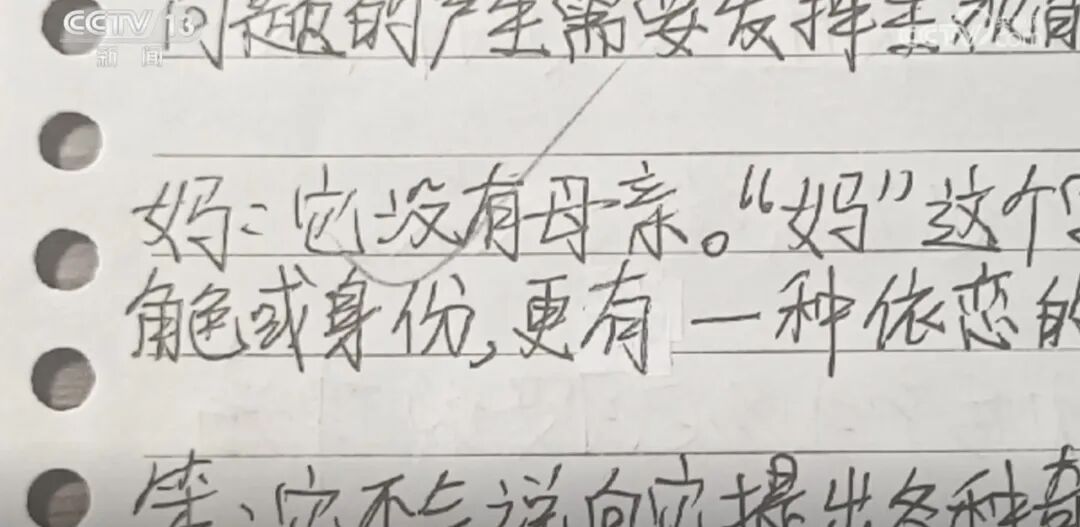 CCTV 13
新闻
CCTV.com
问题的产生需要发挥主观
妈:它没有母亲。“妈”这个
角色或身份,更有一种依恋的
答:它不会说向它提出各种奇